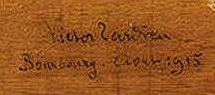 Victor Tardieu
Bourbourg. Aout. 1915